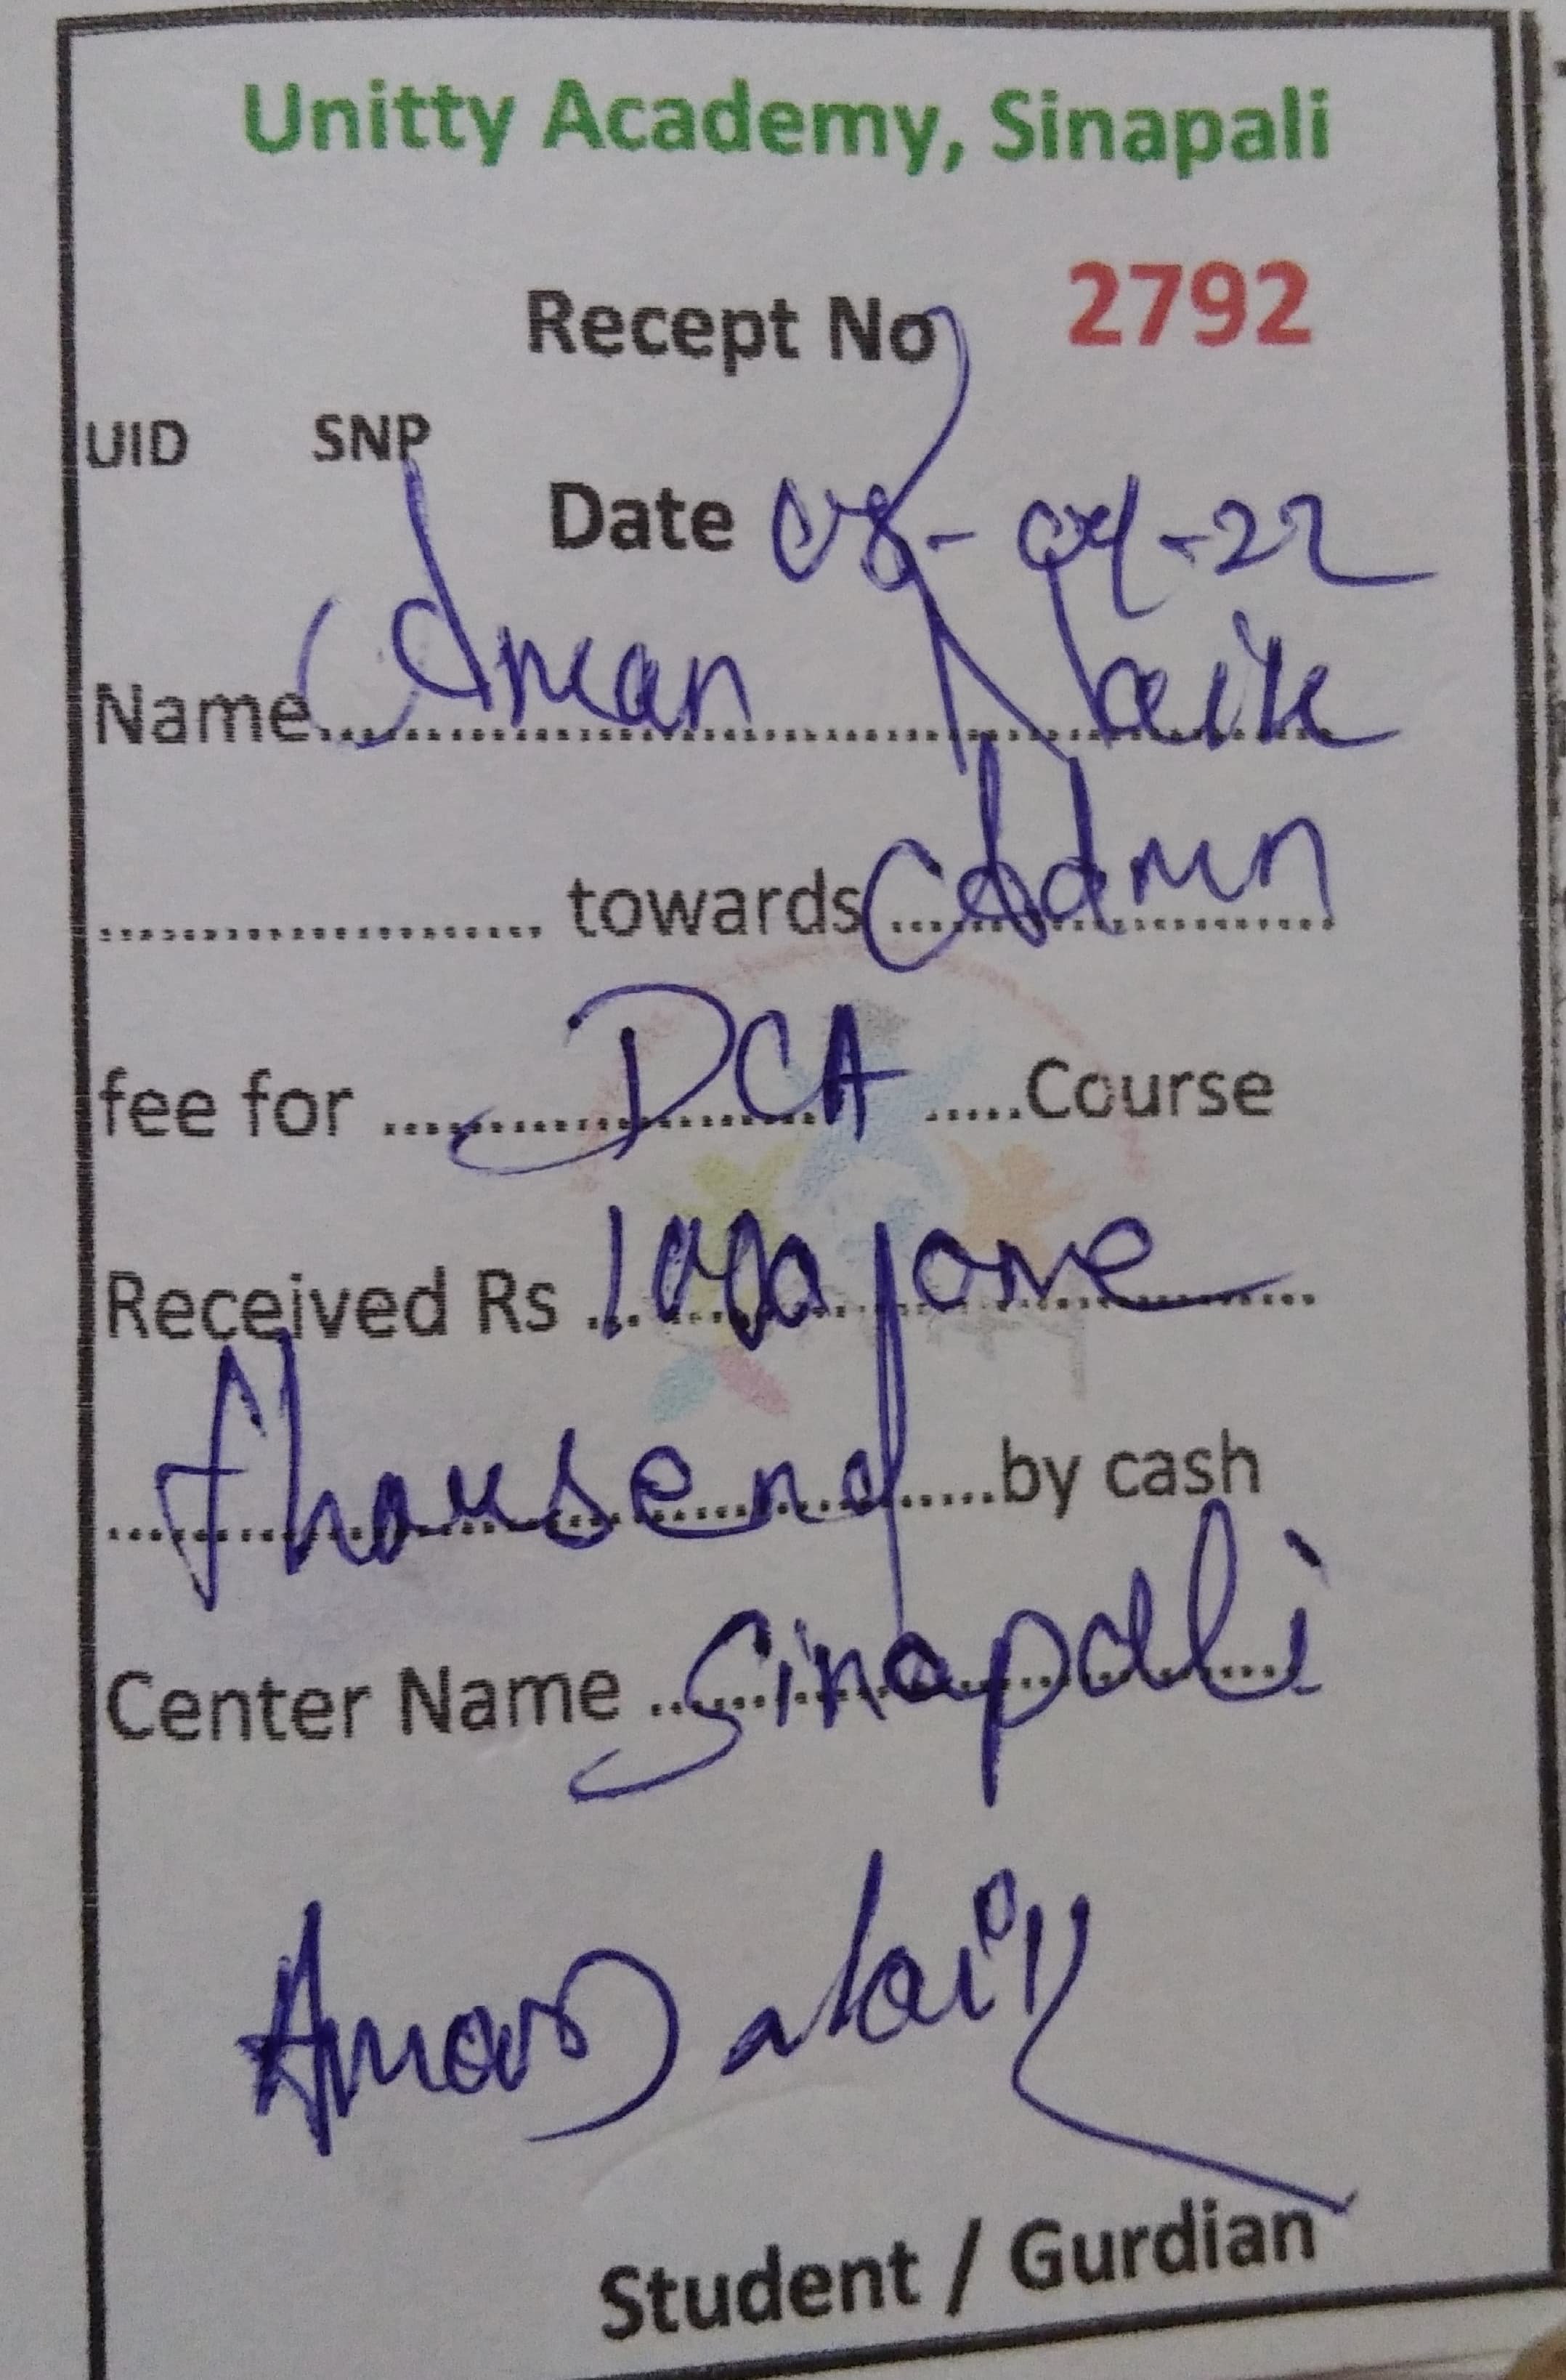 Unitty Academy, Sinapali
Recept No 2792
UID SNP
Date 08-04-22
Name Aman Naik
towards Admn
fee for DCA Course
Received Rs 1000 one
thousend by cash
Center Name Sinapali
Aman Naik
Student / Gurdian